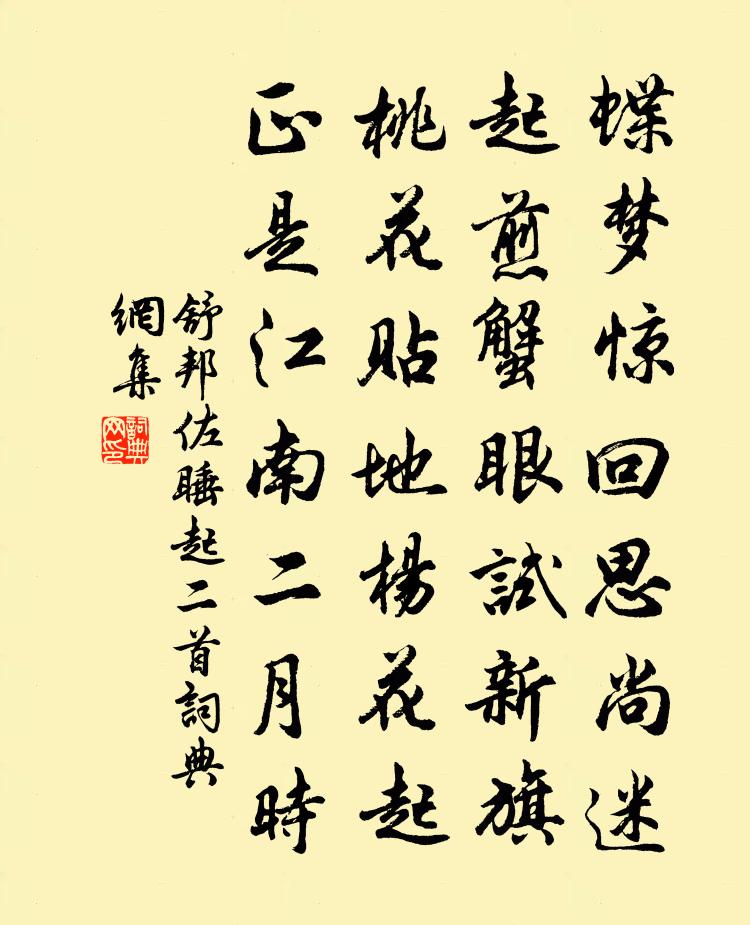 蝶梦惊回思尚迷
起煎蟹眼試新旗
桃花貼地楊花起
正是江南二月時
舒邦佐睡起二首詞典
網集
詞典
网印